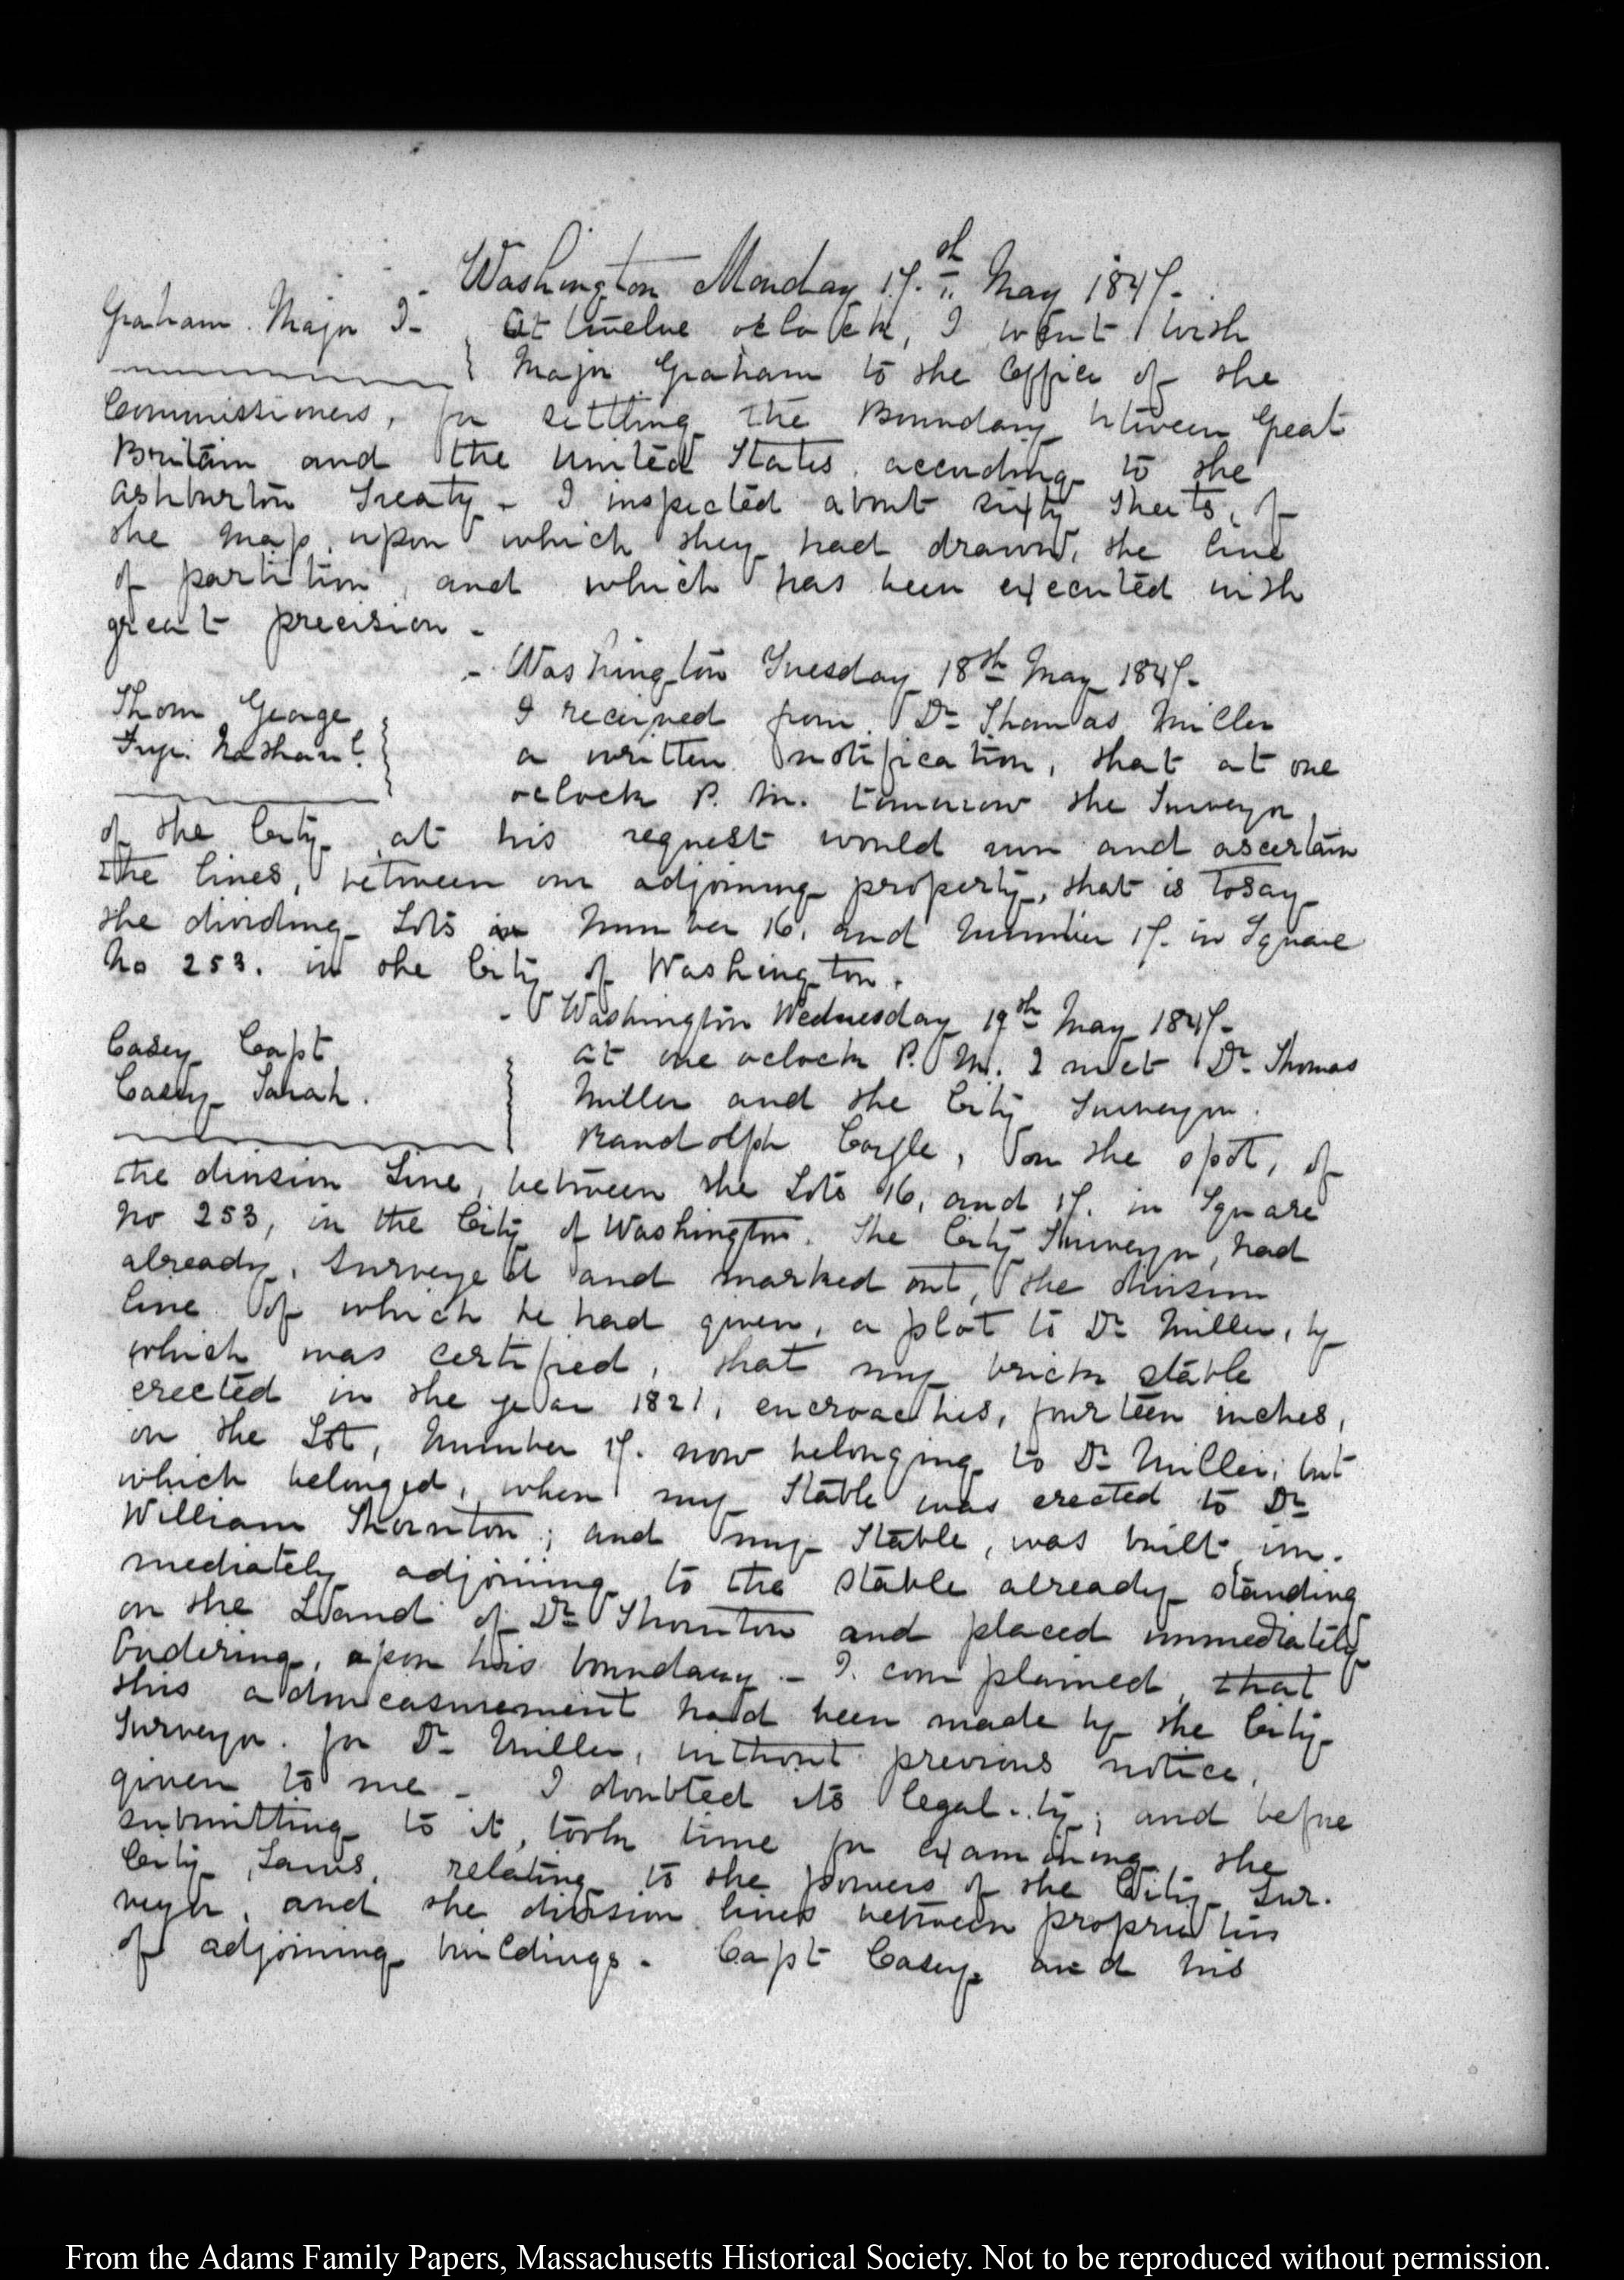 - Washington Monday 17.th May 1847-
Graham. Major I-
At twelve oclock, I went with
Major Graham to the Office of the
Commissioners, for settling the Boundary between Great
Britain and the United States. according to the
Ashburton Treaty - I inspected about sixty Sheets, of
the Map, upon which they had drawn, the line
of partition, and which has been executed with
great precision -
- Washington Tuesday 18th May 1847-
Thom George
Frye Nathanl.
I received from Dr Thomas Miller
a written notification, that at one
oclock P. M. tomorrow the Surveyor,
of the City at his request would run and ascertain
the lines, between our adjoining property, that is to say
the dividing Lots Number 16, and Number 17. in Square
No 253. in the City of Washington.
- Washington Wednesday 19th May 1847-
Casey Capt
Casey Sarah.
At one oclock P. M. I met Dr Thomas
Miller and the City Surveyor.
Randolph Coyle, on the spot, of
the division Line, between the Lots 16, and 17. in Square
No 253, in the City of Washington. The City Surveyor, had
already, surveyed and marked out, the division
line of which he had given, a plot to Dr Miller, by
which was certified, that my brick stable
erected in the year 1821, encroaches, fourteen inches,
on the Lot, Number 17. now belonging to Dr Miller; but
which belonged, when my Stable was erected to Dr
William Thornton; and my Stable, was built im-
mediately adjoining to the stable already standing
on the Land of Dr Thornton and placed immediately
bordering, upon his boundary - I complained, that
this admeasurement had been made by the City
Surveyor. for Dr Miller, without previous notice,
given to me - I doubted its legality; and before
submitting to it, took time for examining, the
City Laws, relating to the powers of the City Sur-
veyor, and the division lines between proprietors
of adjoining buildings - Capt Casey and his
From the Adams Family Papers, Massachusetts Historical Society. Not to be reproduced without permission.